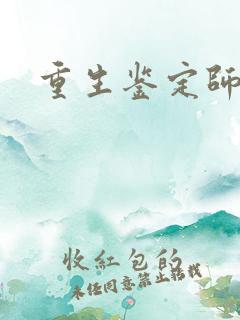 重生鉴定师
收红包的
未经同意禁止转载